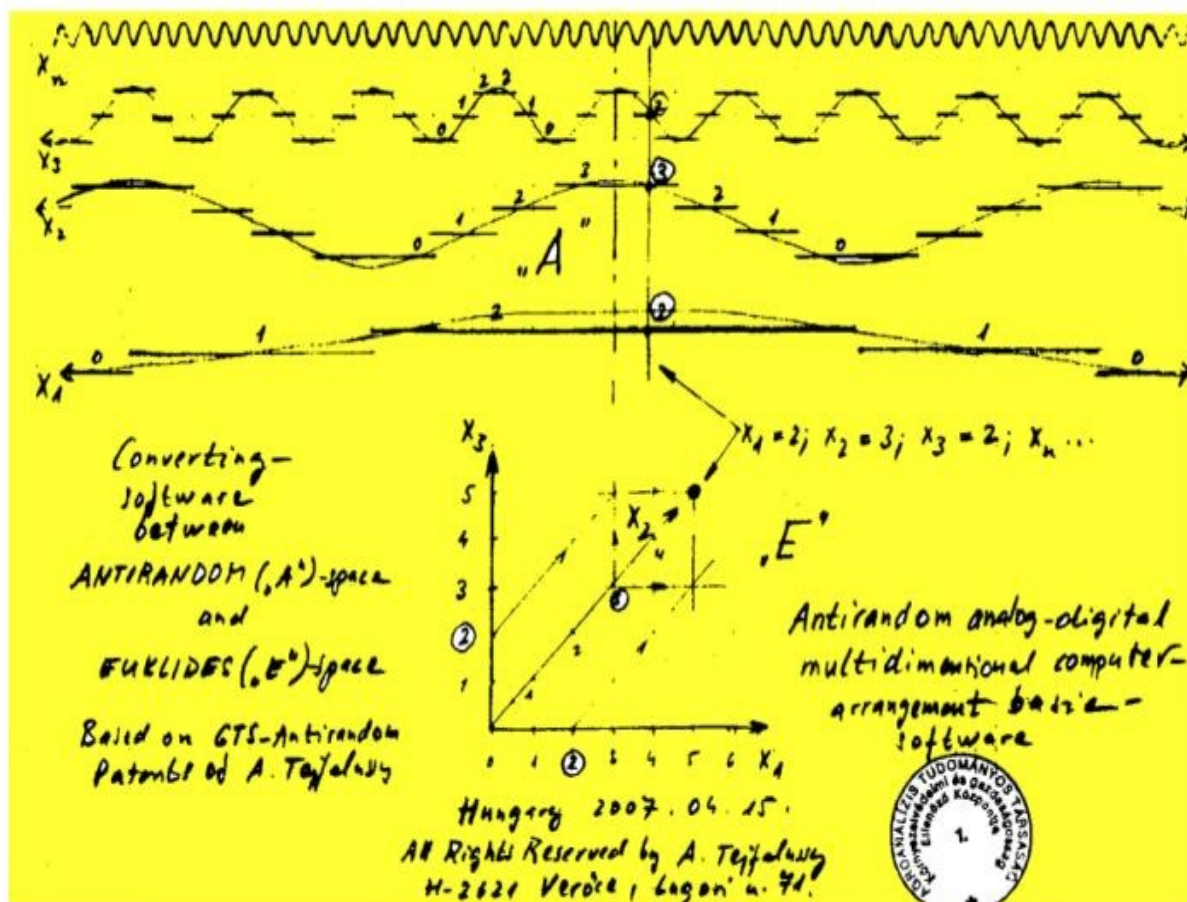 Xn
2 2
1 1
0 0
2
X3
3 3
2 2
X2
1 1
0 0
„A”
2 2
1 1
0 0
X1
X3
X1=2; X2=3; X3=2; Xn...
Converting-
software
between
ANTIRANDOM („A“)-space
and
EUKLIDES („E“)-space
Based on GTS-Antirandom
Patents of A. Tejfalussy
5
4
3
2
1
X2
4
3
2
1
1
1
„E”
0 1 2 3 4 5 6 X1
Antirandom analog-digital
multidimentional computer-
arrangement basic-
software
Hungary 2007.04.15.
All Rights Reserved by A. Tejfalussy
H-2621 Verőce, Lugosi u. 71.
AGROANALÍZIS TUDOMÁNYOS TÁRSASÁG
Környezetvédelmi és gazdaságossági
Ellenőrző Központja
1.